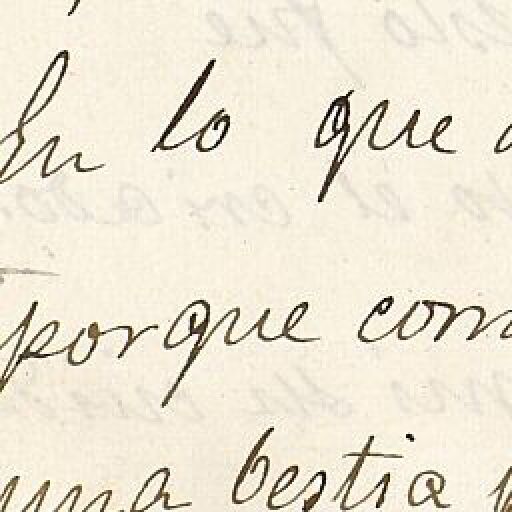 En lo que
porque com
una bestia